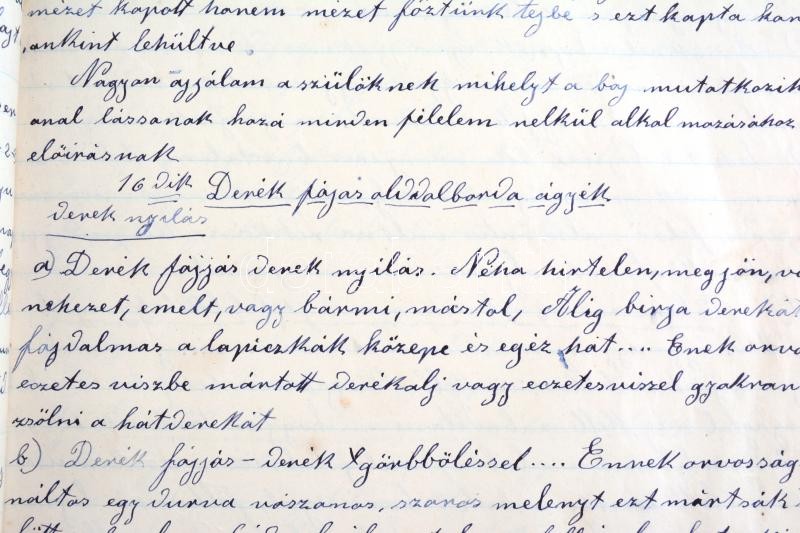 mézet kapott hanem mézet főztünk tejbe s ezt kapta kan
ankint lehültve
Nagyon ajjálam a szülöknek mihelyt a baj mutatkozik
anal lássanak hozá minden félelem nelkül alkalmozásához
előirásnak
16 dik Derék fájas olddalborda ágyék
derek nyilás
a) Derék fájjás derek nyilás. Néha hirtelen, megjön, va
nehezet, emelt, vagy bármi, mástol, Alig birja derekát
fájdalmas a lapiczkák közepe és egéz hát.... Enek orvo
eczetes viszbe mártott derékalj vagy eczetesviszel gyakran
zsölni a hátderekát
b) Derék fájjás - derék görbböléssel.... Ennek orvosság
náltos egy durva vászonas, szoros melenyt ezt mártsák